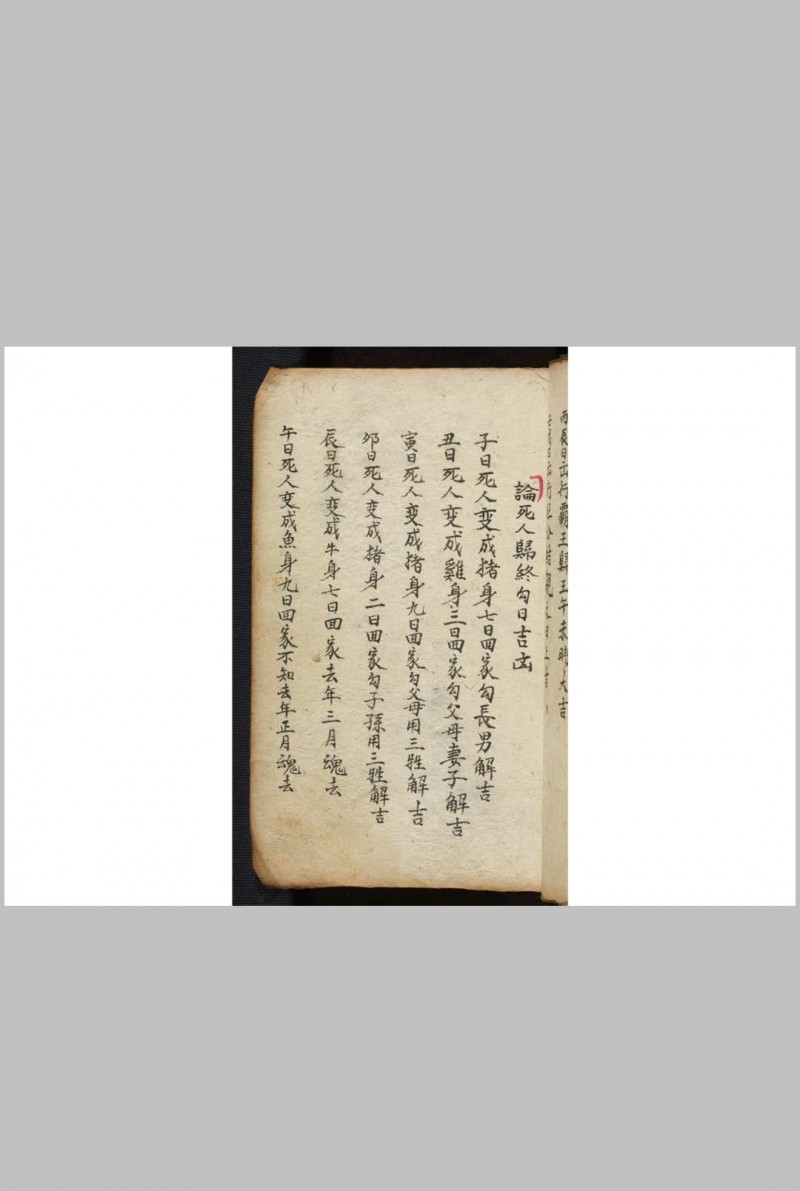 丙辰日出行霸王歸王午未時大吉
論死人歸終勾日吉凶
子日死人变成猪身七日囬家勾長男解吉
丑日死人变成雞身三日囬家勾父母妻子解吉
寅日死人变成猪身九日囬家勾父母用三牲解吉
卯日死人变成猪身二日囬家勾子孫用三牲解吉
辰日死人变成牛身七日囬家去年三月魂去
午日死人变成魚身九日囬家不知去年正月魂去